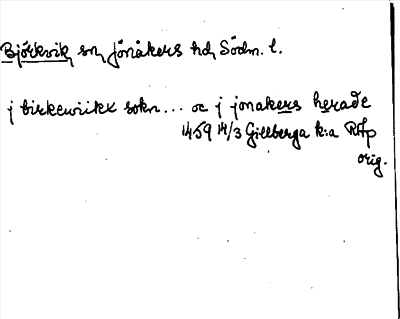 Björkvik sn Jönåkers hd Södm. l.
j birkewiikx sokn... oc j jonakers herade
1459 14/3 Gillberga k:a RAp
orig.